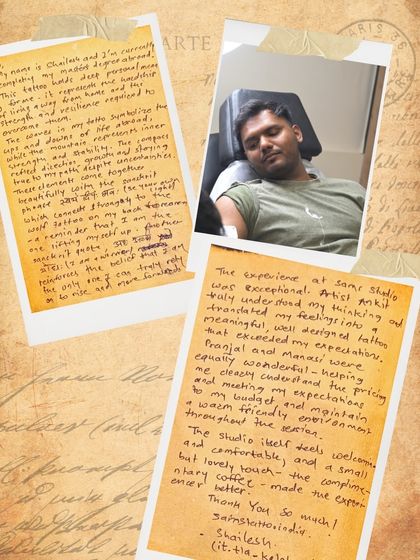 My name is Shailesh and I'm currently
completing my masters degree abroad.
This tattoo holds deep personal meaning
to forme. it represents the hardship
of living away from home and the
strength and resilience required to
overcome them.
waves in my tattoo symbolize the
ups and downs of life abroad,
while the mountain represents inner
strength and stability. The compass
reflect direction, growth and staying
true to my path despite uncertainties.
These elements come together
beautifully with the sanskrit
phrase (Be your own light)
which connects strongly to the
wolf tattoo on my back
- a reminder that I am the
one lifting myself up. Another
sanskrit quote
(I am a warrior)
reinforces the belief that I am
the only one I can truly rely
on to rise and move forward
ARTE
PARIS
The experience at Sams Studio
was exceptional. Artist Ankit
truly understood my thinking and
translated my feelings into a
meaningful, well designed tattoo
that exceeded my expectations.
Pranjal and Manasi were
equally wonderful - helping
me cleary understand the pricing
and meeting my expectations
to my budget and maintain
a warm friendly environment
throughout the session.
The studio itself feels welcoming
and comfortable, and a small
but lovely touch - the complime-
ntary coffee - made the experi-
ence better.
Thank You So much!
Samstattooindia
- Shailesh